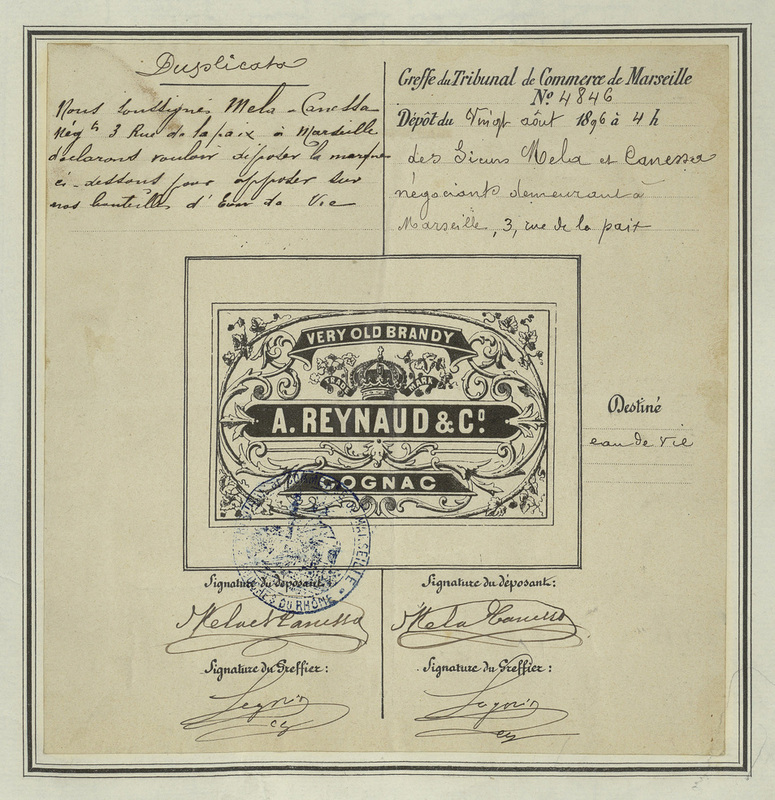 Duplicata
Nous soussignés Mela - Canessa
Negts 3 Rue de la paix à Marseille
déclarons vouloir déposer la marque
ci-dessous pour apposer sur
nos bouteilles d'Eau de Vie
Greffe du Tribunal de Commerce de Marseille
No 4846
Dépôt du Vingt août 1896 à 4 h
des Sieurs Mela et Canessa
négociants demeurant à
Marseille, 3, rue de la paix
VERY OLD BRANDY
TRADE MARK
A. REYNAUD & Co
COGNAC
Destiné
eau de vie
TRIBUNAL DE COMMERCE DE MARSEILLE
BOUCHES DU RHÔME
Signature du déposant:
Mela et Canessa
Signature du Greffier:
Signature du déposant:
Mela Canessa
Signature du Greffier: